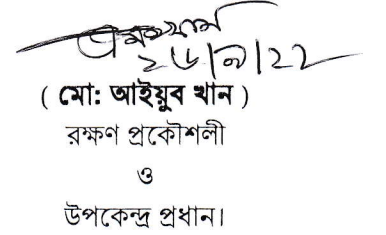 ২৬|৯|২২
( মো: আইয়ুব খান )
রক্ষণ প্রকৌশলী
ও
উপকেন্দ্র প্রধান।